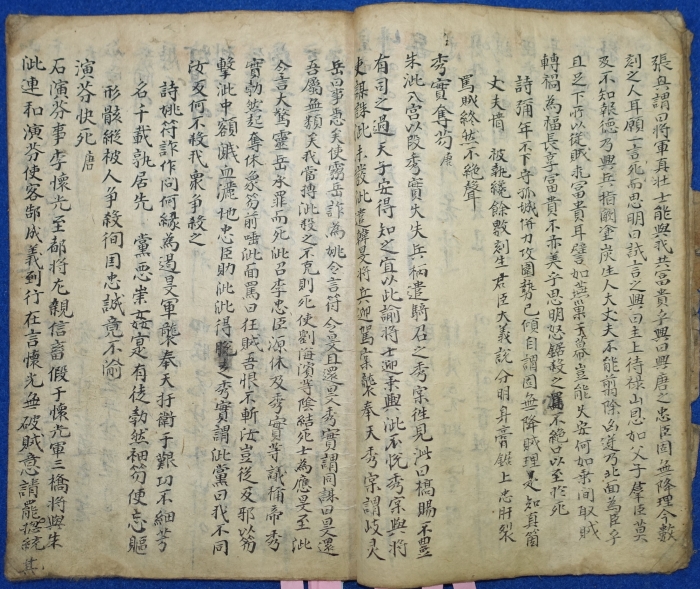 張興謂曰將軍真壯士能與我共富貴乎興曰興唐之忠臣固無降理今數
刻之人耳願一言死而思明曰試言之興曰主上待祿山恩如父子羣臣莫
及不知報德乃興兵指闕塗炭生人大丈夫不能剪除凶逆乃北面為臣乎
且足下所以從賊求富貴耳譬如燕巢于幕豈能久安何如乘間取賊
轉禍為福長享富貴不亦美乎思明怒鋸殺之罵不絕口以至於死
詩 彌年不下守孤城併力攻圍勢已傾自謂固無降賊理是知真箇
丈夫情 被執纔餘數刻生君臣大義說分明身膏鋸上忠肝裂
罵賊終然不絕聲
秀實奪笏 唐
朱泚入宮以段秀實失兵柄遣騎召之秀實往見泚曰犒賜不豐
有司之過天子安得知之宜以此諭將士迎乘輿泚不悅秀實與將
吏謀誅泚未發泚遣韓旻將兵迎駕實襲奉天秀實謂岐灵
岳曰事急矣使靈岳詐為姚令言符令旻且還旻秀實謂同謀曰旻還
吾屬無類矣我當搏泚殺之不克則死使劉海濱等陰結死士為應旻至泚
令言大驚靈岳承罪而死泚召李忠臣源休及秀實等議稱帝秀
實勃然起奪休象笏前唾泚面罵曰狂賊吾恨不斬汝豈從反邪以笏
擊泚中額濺血灑地忠臣助泚泚得脫秀實謂泚黨曰我不同
汝反何不殺我衆爭殺之
詩 姚符詐作問何緣為遏旻軍襲奉天扞衛于艱功不細芳
名千載孰居先 黨惡崇姦寔有徒勃然袖笏便忘軀
形骸縱被人爭殺徇国忠誠竟不渝
演芬快死 唐
石演芬事李懷光至都將尤親信畜假子懷光軍三橋將與朱
泚連和演芬使客郜成義到行在言懷光無破賊意請罷總統其